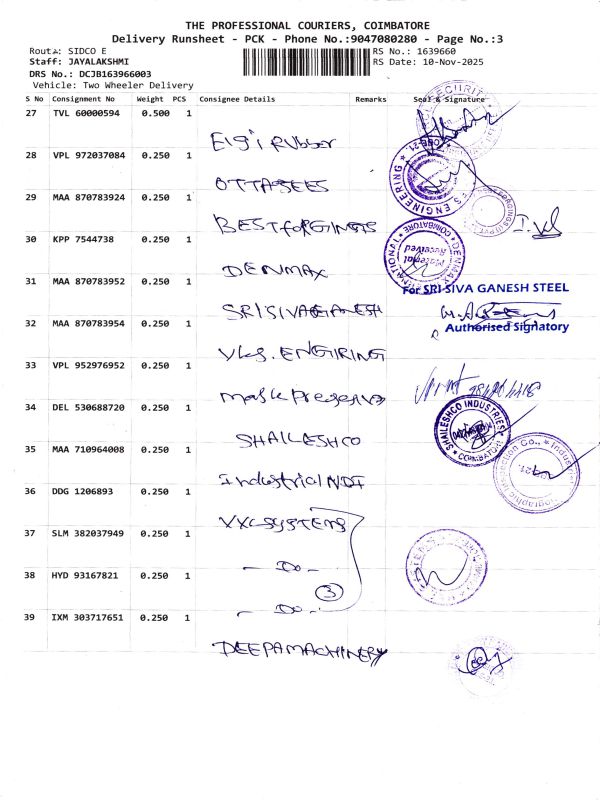 THE PROFESSIONAL COURIERS, COIMBATORE
Delivery Runsheet - PCK - Phone No.:9047080280 - Page No.:3
Route: SIDCO E
RS No.: 1639660
Staff: JAYALAKSHMI
RS Date: 10-Nov-2025
DRS No.: DCJB163966003
Vehicle: Two Wheeler Delivery
S No Consignment No Weight PCS Consignee Details Remarks Seal & Signature
27 TVL 60000594 0.500 1
Elgi Rubber
28 VPL 972037084 0.250 1
OTTABEES
29 MAA 870783924 0.250 1
BEST forGINGS
30 KPP 7544738 0.250 1
DENMAX
31 MAA 870783952 0.250 1
SRI SIVA GANESH
For SRI SIVA GANESH STEEL
Authorised Signatory
32 MAA 870783954 0.250 1
Vks. ENGIRING
33 VPL 952976952 0.250 1
34 DEL 530688720 0.250 1
SHAILESHCO
SHAILESHCO INDUSTRIES
COIMBATORE
35 MAA 710964008 0.250 1
Industrial NDT
36 DDG 1206893 0.250 1
VXL SYSTEMS
37 SLM 382037949 0.250 1
- Do -
38 HYD 93167821 0.250 1
3
- Do -
39 IXM 303717651 0.250 1
DEEPA MACHINERY